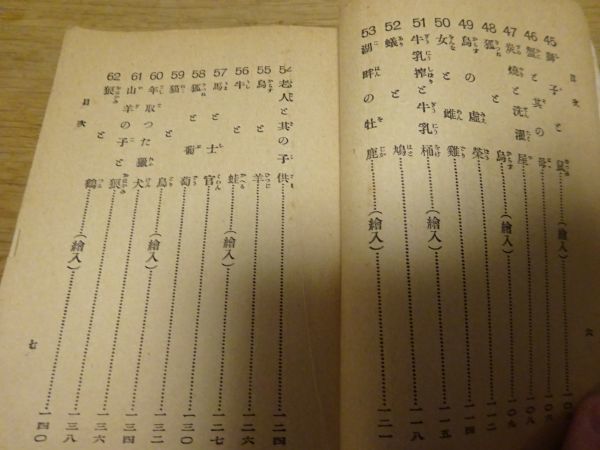 目次
45 獅子と鼠……(繪入)
46 蟹と其の母
47 炭燒と洗濯屋
48 狐と烏……(繪入)
49 烏の虛榮……一一二
50 女と雌雞……一一五
51 牛乳搾と牛乳桶……(繪入)……一一八
52 蟻と鳩
53 湖畔の牡鹿……一二一
六
54 老人と其の子供……一二四
55 烏と羊……一二六
56 牛と蛙……(繪入)
57 馬と士官……一二七
58 狐と葡萄……一三〇
59 猫と鳥……一三二
60 年取つた獵犬……(繪入)……一三四
61 山羊の子と狼……一三六
62 狼と鶴……(繪入)……一三八
一四〇
目次
七